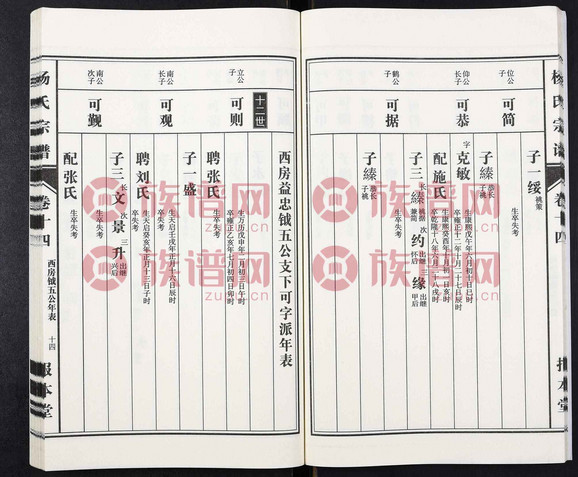 杨氏宗谱
卷十四
报本堂
位公
子
可简
生卒失考
子一
绥
祧策
仰公
长子
可恭
生康熙戊午年六月初十日巳时
卒雍正十二年十月二十七日辰时
字
克敏
配施氏
生康熙癸酉年十月初一日亥时
卒乾隆十八年六月二十八戌时
子三
次
约
出继
怀后
三
缘
出继
甲后
鹤公
子
可据
生卒失考
西房益忠钺五公支下可字派年表
十二世
立公
子
可则
生万历戊申年二月初三日午时
卒雍正乙亥年七月初四日卯时
聘张氏
生卒失考
子一
盛
南公
长子
可观
生天启壬戌年正月十六日辰时
卒失考
聘刘氏
生天启癸亥年正月十三日子时
卒失考
子三
长
文
次
景
三
升
出继
兴后
南公
次子
可觐
生卒失考
配张氏
生卒失考
杨氏宗谱
卷十四
西房钺五公年表
十四
报本堂
族谱网